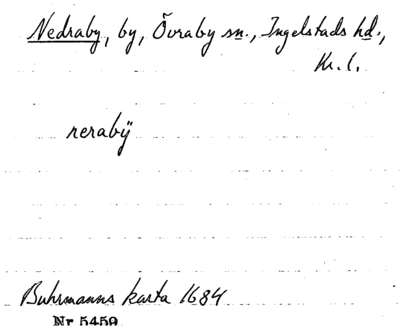 Nedraby, by, Övraby sn., Ingelstads hd.,
Kr. l.
nerabÿ
Buhrmanns karta 1684
Nr 5459